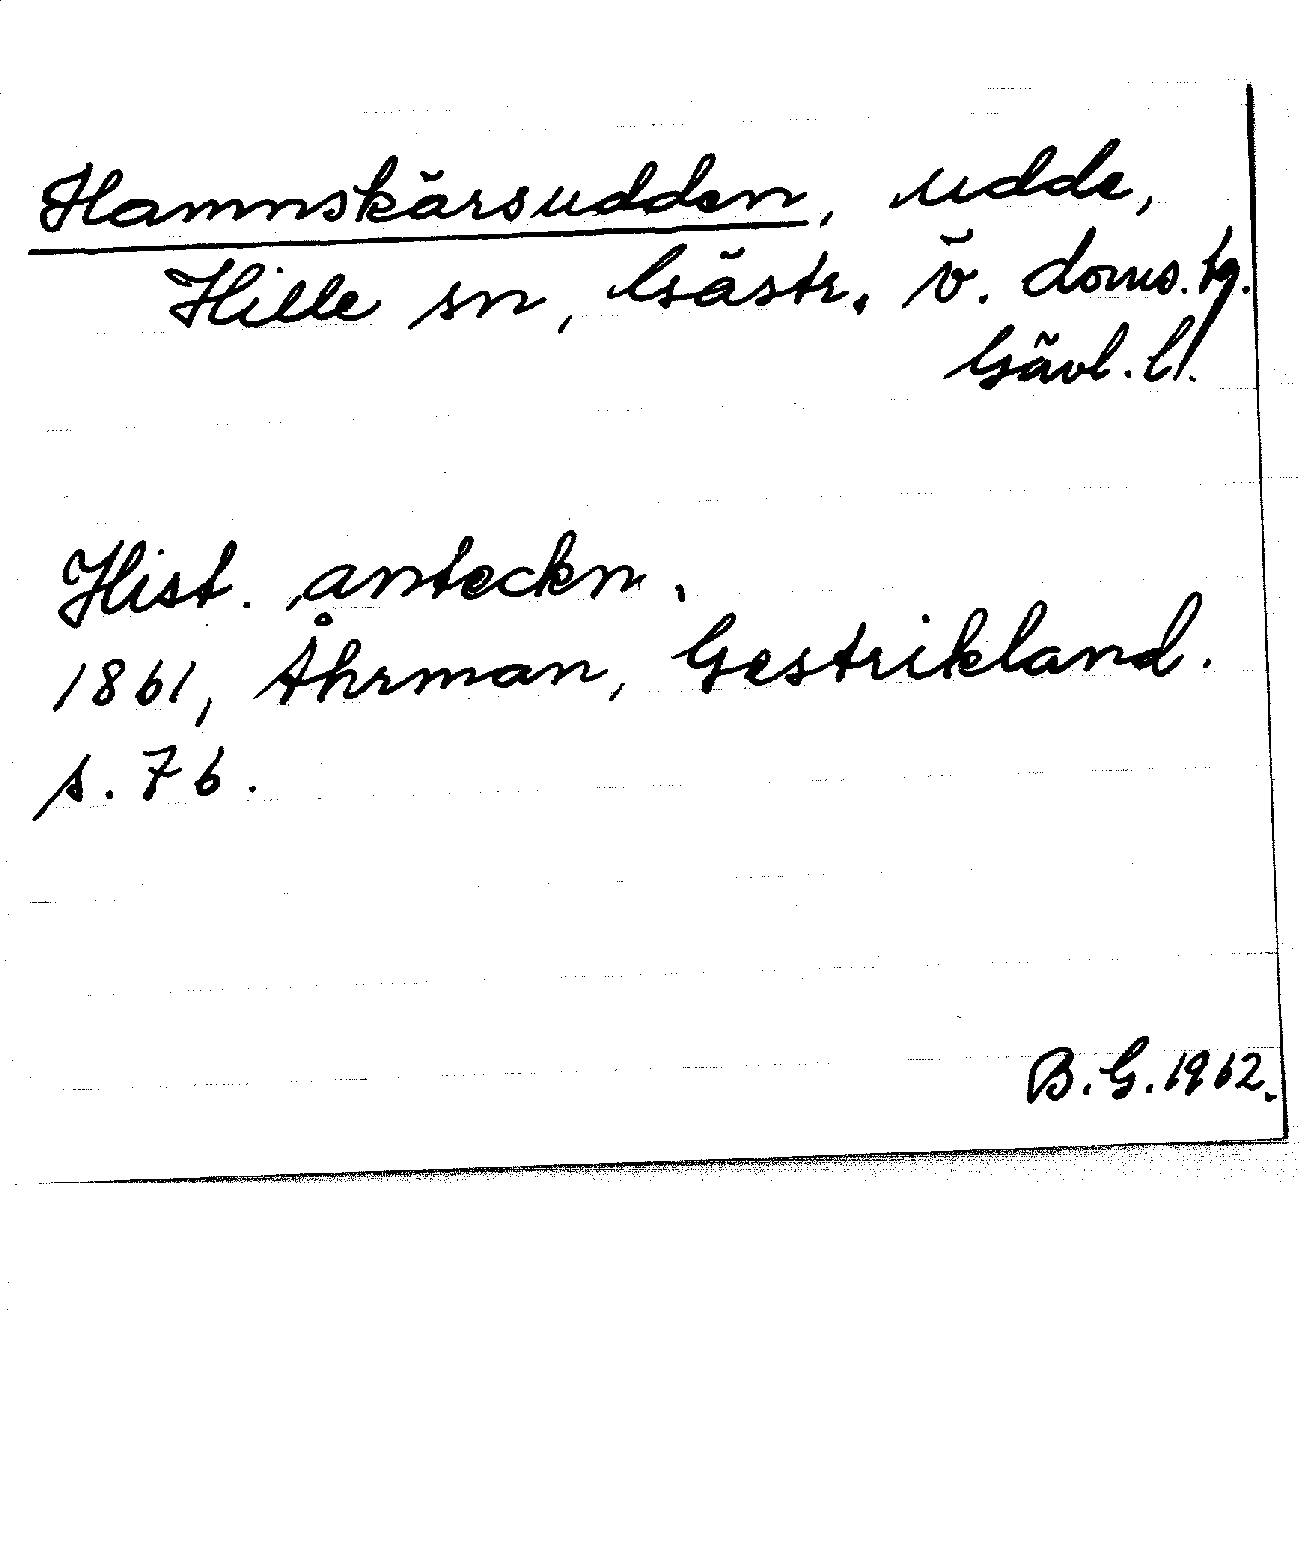 Hamnskärsudden, udde,
Hille sn, Gästr. ö. doms.tg.
Gävl. l.
Hist. anteckn.
1861, Åhrman, Gestrikland.
s. 76.
B. G. 1962.